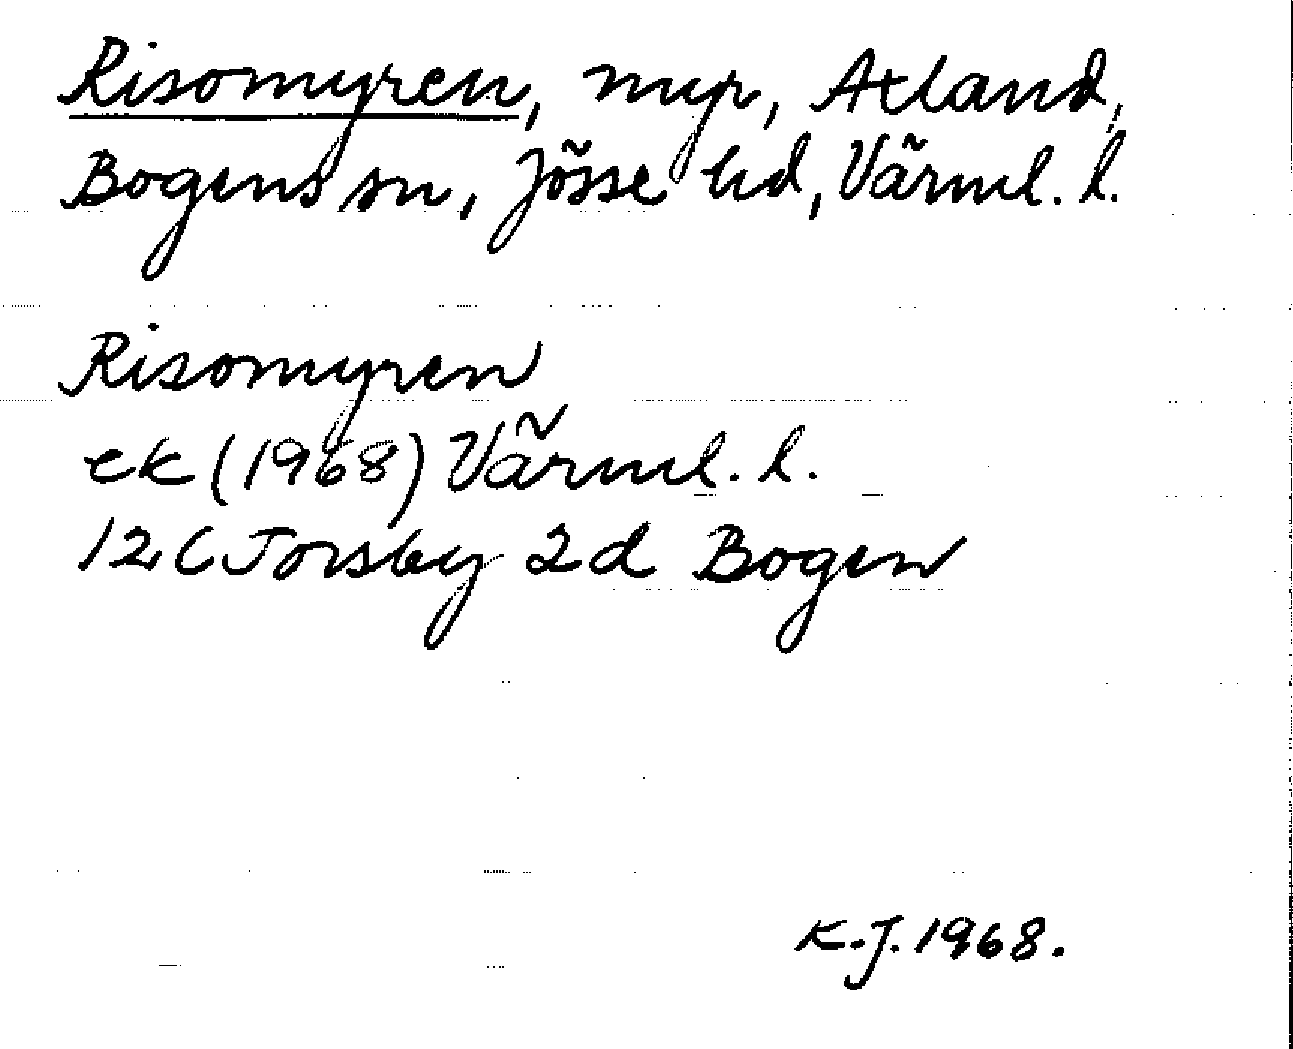 Risomyren, myr, Axland,
Bogens sn, Jösse hd, Värml. l.
Risomyren
ek (1968) Värml. l.
12 C Torsby 2d Bogen
K.J. 1968.